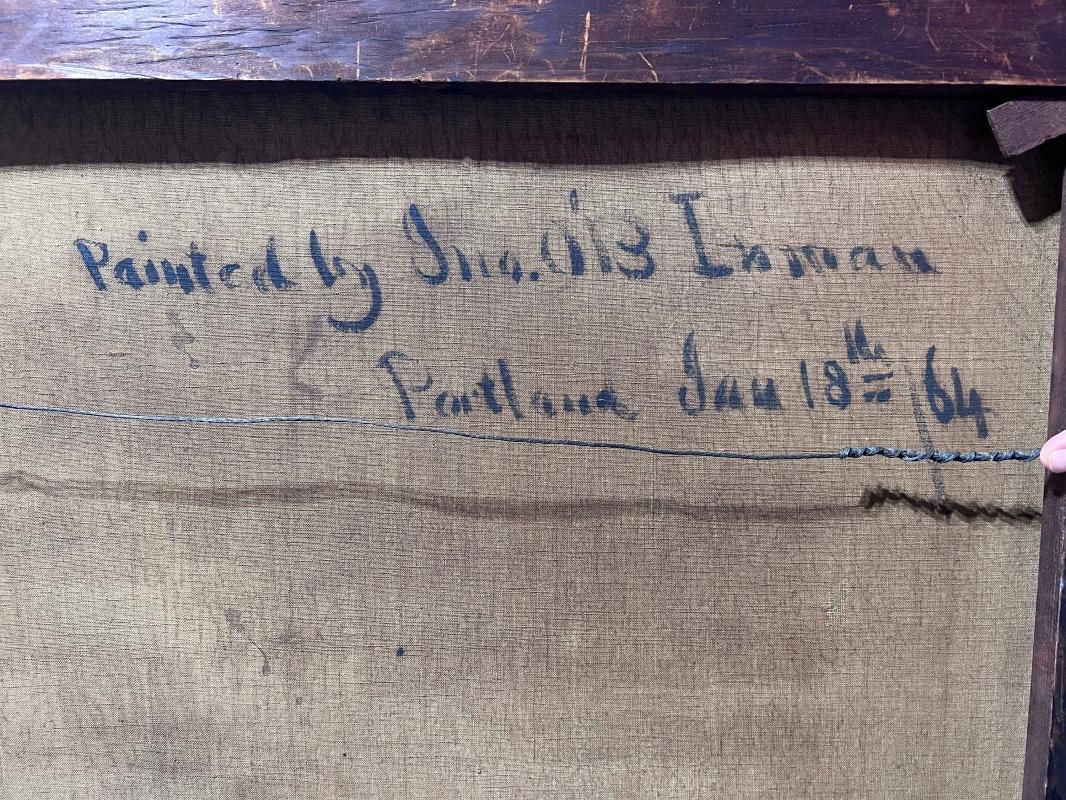 Painted by Jno. O'B Inman
Portland Jan 18th /64